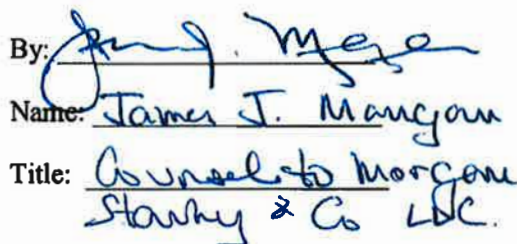 By:
Name: James J. Mangan
Title: Counsel to Morgan
Stanley & Co LLC.